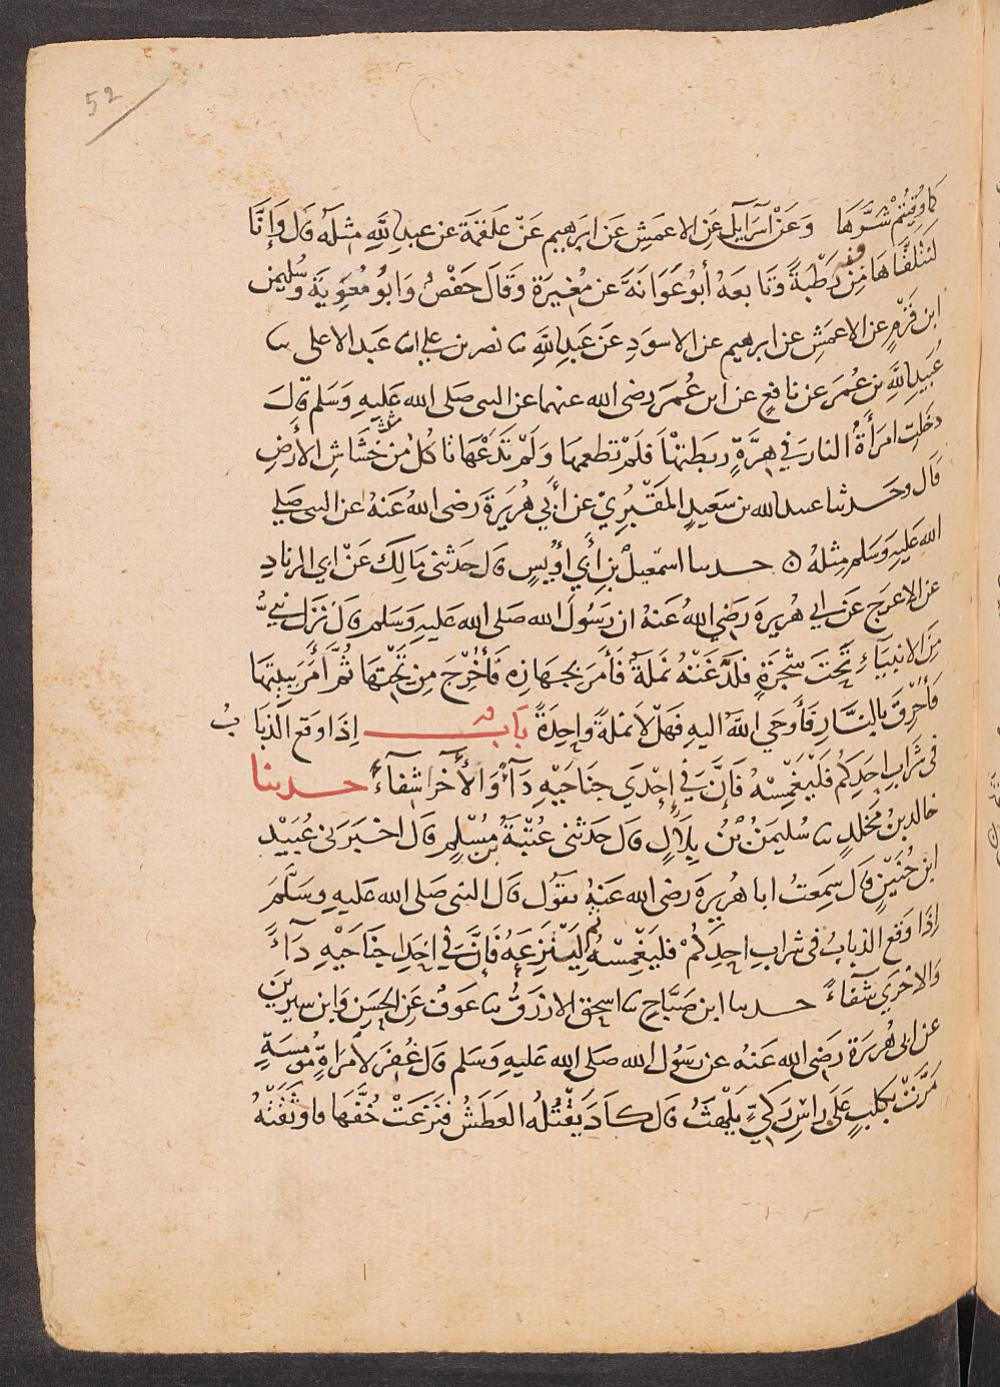 52
كَما وُقِيتُمْ شَرَّهَا وَعَنْ اسرَآئيلَ عَنِ الاعمَشِ عَنَ ابرَهِيم عَنْ عَلقمَةَ عن عبدِ اللَّهِ مثلَهُ قَالَ وَإِنَّا
لَنَتَلَقَّاهَا مِنْ فيهِ رَطْبَةً وَتَابعَهُ أبُو عَوَانَةَ عن مُغيرَة وَقَالَ حَفْصٌ وَابُو مُعوِيَةَ وسُليمن
ابن قَرْمٍ عنِ الاعمَشِ عن ابرهيم عن الاسوَدِ عَن عَبدِ اللَّهِ ثنا نصر بن علي انا عَبد الاعلى ثنا
عُبَيدِ اللَّهِ بن عُمَرَ عن نافعٍ عن ابن عُمَرَ رضى الله عنهما عن النبى صَلى الله عَلَيهِ وَسَلم قَالَ
دخَلتِ امرَأةٌ النارَ في هِرَّةٍ ربَطَتهَا فَلَمْ تطعمهَا وَلَمْ تَدَعْهَا تَاكُلُ مِنْ خَشَاشِ الأرْضِ
قَال وحَدثنا عبيدالله بن سَعَيدٍ المَقْبُرِيْ عن أبي هُرَيرَةَ رَضى اللهُ عَنهُ عن النبى صَلي
الله عَليهِ وَسَلم مِثلَهُ ٥ حدثنا اسمَعِيلُ بن أبِي أوَيسٍ قَالَ حَدثنى مَالِكٌ عَنْ ابي الزنادِ
عن الاعرَج عَن ابي هُريرة رَضي اللهُ عَنهُ ان رَسُولَ الله صَلى الله عَليهِ وَسَلم قَالَ نَزَلَ نَبِيٌّ
مِنَ الانبيَآءِ تَحتَ شجَرَةٍ فَلَدَغَتْهُ نَملَةٌ فَأمَرَ بجهَازِه فَأُخرِجَ مِن تَحتهَا ثُمَّ أمَرَ بِبَيتِهَا
فَأُحْرِقَ بِالنَّارِ فَأوحَي اللَّهُ اليهِ فَهَلَّا نَملَةً وَاحِدَةً بَاب إذَا وَقع الذبَابُ
فى شَرَابِ احَدِكُم فَليَغمِسْهُ فَإِنَّ في إِحْدَي جنَاحَيْهِ دَآءً وَالأخرَا شفآءً حدثنا
خالد بنُ مخلدٍ ثنا سُليمَنُ بْنُ بِلَالٍ قَالَ حَدثنى عُتبَةُ بن مُسْلِمٍ قَالَ اخبَرَنى عُبَيْدُ
ابن حُنَيْنٍ قَالَ سَمِعتُ ابا هُرَيرةَ رضى الله عَنهُ يَقُول قَالَ النبى صَلى الله عَليهِ وسَلَّمَ
إذَا وَقع الذبَابُ فى شرابِ احَدِكُمْ فَليَغْمِسْهُ ثم لِيَنْزِعهُ فَإِنَّ في احَدِا جنَاحَيْهِ دَآءً
وَالاخرَي شفَآءً حدثنا ابن صَبَّاحٍ ثنا اسحق الازرَقُ ثنا عَوفٌ عَن الحسَنِ وَابنِ سيرينَ
عن ابى هُرَيرَة رَضى الله عَنهُ عن رَسُول الله صَلى الله عَليهِ وَسَلم قَالَ غُفِرَ لامرَاةٍ مُومِسَةٍ
مَرَّتْ بكلبٍ عَلَى رَاسِ رَكيٍّ يَلهَثُ قَال كادَ يَقْتُلُه العَطَشُ فَنَزَعَتْ خُفَّهَا فاوثَقَتهُ